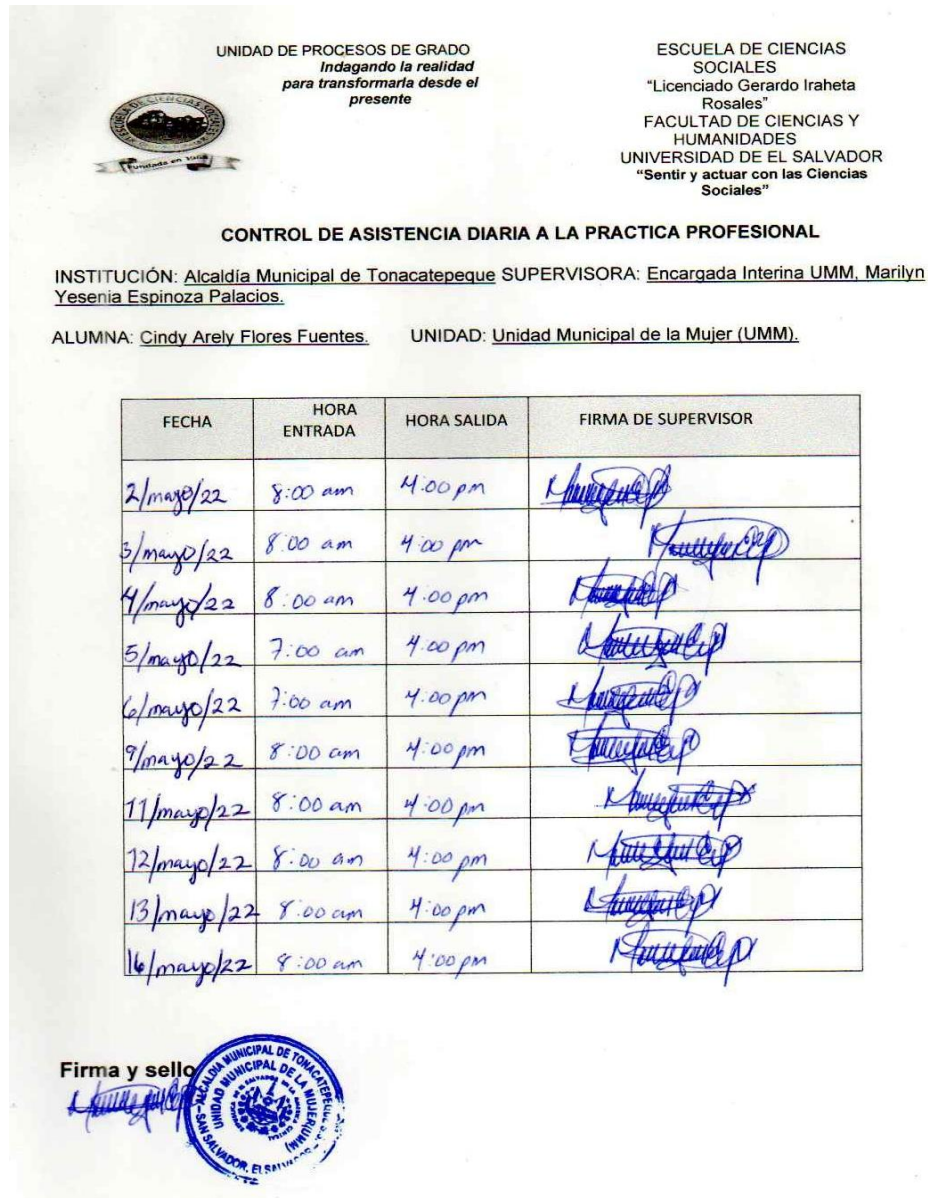 UNIDAD DE PROCESOS DE GRADO
Indagando la realidad
para transformarla desde el
presente
ESCUELA DE CIENCIAS SOCIALES
Fundada en 1968
ESCUELA DE CIENCIAS
SOCIALES
“Licenciado Gerardo Iraheta
Rosales”
FACULTAD DE CIENCIAS Y
HUMANIDADES
UNIVERSIDAD DE EL SALVADOR
“Sentir y actuar con las Ciencias
Sociales”
CONTROL DE ASISTENCIA DIARIA A LA PRACTICA PROFESIONAL
INSTITUCIÓN: Alcaldía Municipal de Tonacatepeque SUPERVISORA: Encargada Interina UMM, Marilyn
Yesenia Espinoza Palacios.
ALUMNA: Cindy Arely Flores Fuentes. UNIDAD: Unidad Municipal de la Mujer (UMM).
FECHA HORA ENTRADA HORA SALIDA FIRMA DE SUPERVISOR
2/mayo/22 8:00 am 4:00 pm
3/mayo/22 8:00 am 4:00 pm
4/mayo/22 8:00 am 4:00 pm
5/mayo/22 7:00 am 4:00 pm
6/mayo/22 7:00 am 4:00 pm
9/mayo/22 8:00 am 4:00 pm
11/mayo/22 8:00 am 4:00 pm
12/mayo/22 8:00 am 4:00 pm
13/mayo/22 8:00 am 4:00 pm
16/mayo/22 8:00 am 4:00 pm
Firma y sello
ALCALDIA MUNICIPAL DE TONACATEPEQUE
UNIDAD MUNICIPAL DE LA MUJER (UMM)
SAN SALVADOR, EL SALVADOR